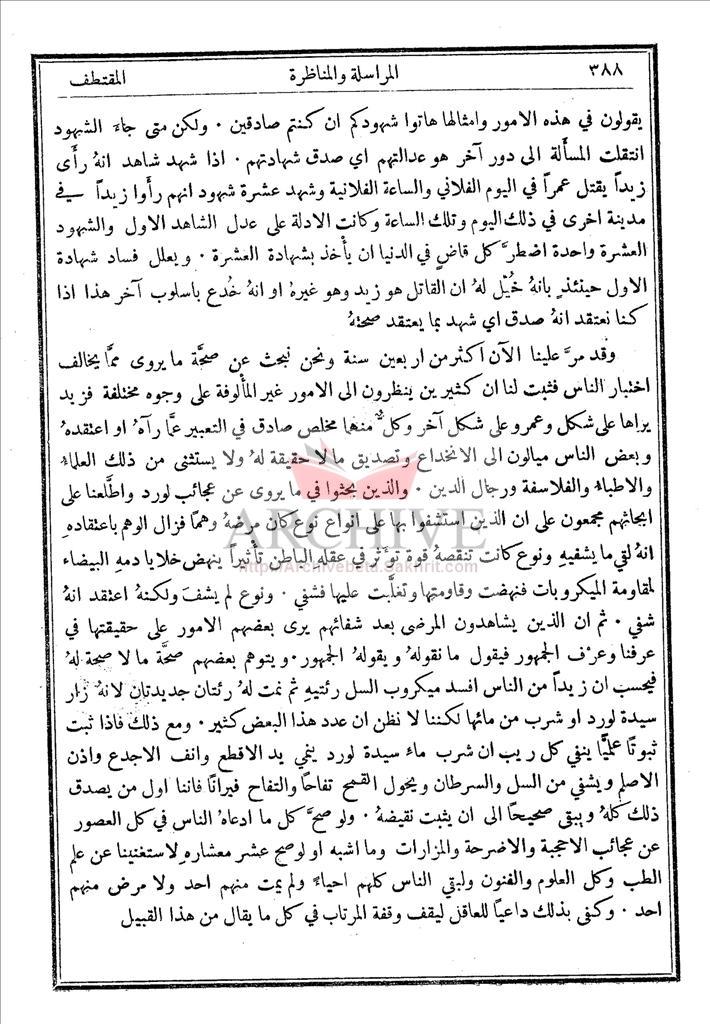 ٣٨٨ المراسلة والمناظرة المقتطف
يقولون في هذه الامور وامثالها هاتوا شهودكم ان كنتم صادقين . ولكن متى جاءَ الشهود
انتقلت المسأَلة الى دور آخر هو عدالتهم اي صدق شهادتهم . اذا شهد شاهد انهُ رأَى
زيداً يقتل عمراً في اليوم الفلاني والساعة الفلانية وشهد عشرة شهود انهم رأَوا زيداً في
مدينة اخرى في ذلك اليوم وتلك الساعة وكانت الادلة على عدل الشاهد الاول والشهود
العشرة واحدة اضطرَّ كل قاضٍ في الدنيا ان يأْخذ بشهادة العشرة . ويعلل فساد شهادة
الاول حينئذٍ بانهُ خُيّل لهُ ان القاتل هو زيد وهو غيرهُ او انهُ خُدع باسلوب آخر هذا اذا
كنا نعتقد انهُ صدق اي شهد بما يعتقد صحتهُ
وقد مرَّ علينا الآن اكثر من اربعين سنة ونحن نبحث عن صحَّة ما يروى ممَّا يخالف
اختبار الناس فثبت لنا ان كثيرين ينظرون الى الامور غير المأْلوفة على وجوه مختلفة فزيد
يراها على شكل وعمرو على شكل آخر وكلٌّ منهما مخلص صادق في التعبير عمَّا رآهُ او اعتقدهُ
وبعض الناس ميالون الى الانخداع وتصديق ما لا حقيقة لهُ ولا يستثنى من ذلك العلماءُ
والاطباءُ والفلاسفة ورجال الدين . والذين بحثوا في ما يروى عن عجائب لورد واطَّلعنا على
ابحاثهم مجمعون على ان الذين استشفوا بها على انواع نوع كان مرضهُ وهماً فزال الوهم باعتقادهِ
انهُ لقي ما يشفيهِ ونوع كانت تنقصهُ قوة تؤثر في عقلهِ الباطن تأْثيراً ينهض خلايا دمهِ البيضاء
لمقاومة الميكروبات فنهضت وقاومتها وتغلَّبت عليها فشفي . ونوع لم يشفَ ولكنهُ اعتقد انهُ
شفي . ثم ان الذين يشاهدون المرضى بعد شفائهم يرى بعضهم الامور على حقيقتها في
عرفنا وعرف الجمهور فيقول ما نقولهُ ويقولهُ الجمهور . ويتوهم بعضهم صحَّة ما لا صحة لهُ
فيحسب ان زيداً من الناس افسد ميكروب السل رئتيهِ ثم نمت لهُ رئتان جديدتان لانهُ زار
سيدة لورد او شرب من مائها لكننا لا نظن ان عدد هذا البعض كثير . ومع ذلك فاذا ثبت
ثبوتاً علميًّا ينفي كل ريب ان شرب ماء سيدة لورد ينمي يد الاقطع وانف الاجدع واذن
الاصلم ويشفي من السل والسرطان ويحول القمح تفاحاً والتفاح فيراناً فاننا اول من يصدق
ذلك كلهُ ويبقى صحيحاً الى ان يثبت نقيضهُ . ولو صحَّ كل ما ادعاهُ الناس في كل العصور
عن عجائب الاحجبة والاضرحة والمزارات وما اشبه او لو صح عشر معشارهِ لاستغنينا عن علم
الطب وكل العلوم والفنون ولبقي الناس كلهم احياءً ولم يمت منهم احد ولا مرض منهم
احد . وكفى بذلك داعياً للعاقل ليقف وقفة المرتاب في كل ما يقال من هذا القبيل
ARCHIVE
http://Archivebeta.Sakhrit.com